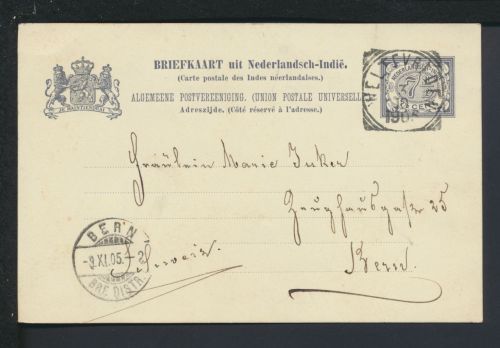 BRIEFKAART uit Nederlandsch-Indië.
(Carte postale des Indes néerlandaises.)
ALGEMEENE POSTVEREENIGING. (UNION POSTALE UNIVERSELLE)
Adreszijde. (Côté réservé à l'adresse.)
JE MAINTIENDRAI
WELTEVREDEN
Fräulein Marie
Zeughausgasse 25
Schweiz
Bern.
BERN
-9.XI.05.
BRF. DISTR.